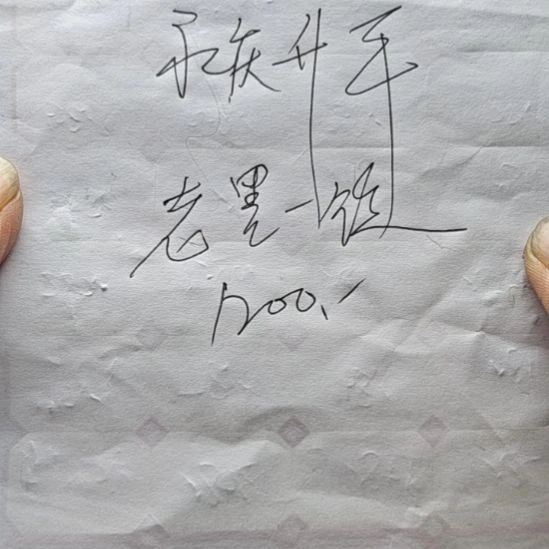 永庆升平
老墨一锭
1200.-